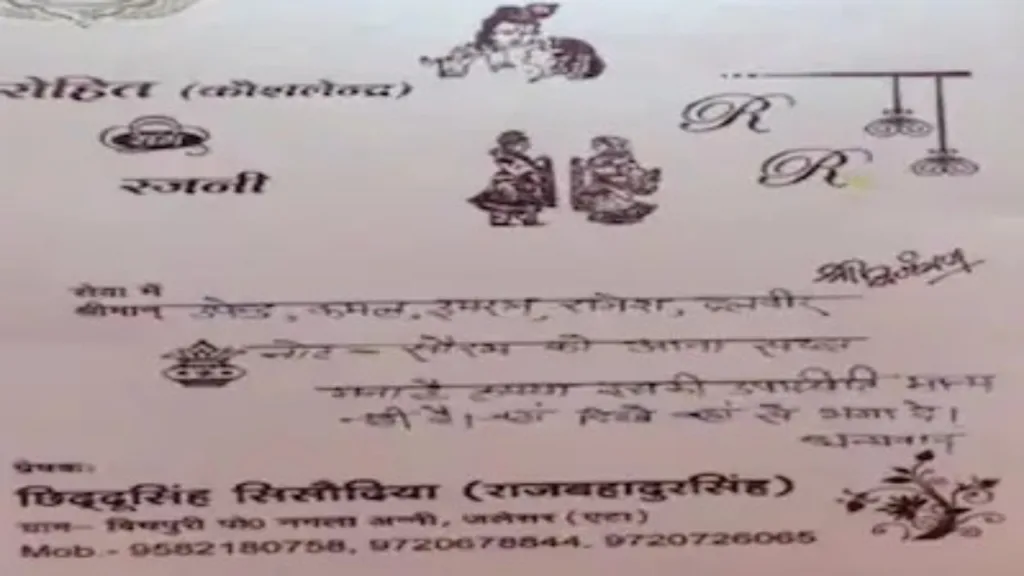 रोहित (कौशलेन्द्र)
संग
रजनी
R
R
सेवा में
श्रीमान् उपेन्द्र, कमल, रमेश, राजेश, दलवीर
नोट - सौरभ को आना सख्त
मना है कृपया इसकी उपस्थिति मान्य
नहीं है। जहां दिखे वहां से भगा दे।
धन्यवाद
प्रेषकः
छिद्दूसिंह सिसौदिया (राजबहादुरसिंह)
ग्राम- विचपुरी पो0 नगला अन्नी, जलेसर (एटा)
Mob.- 9582180758, 9720678844, 9720726065